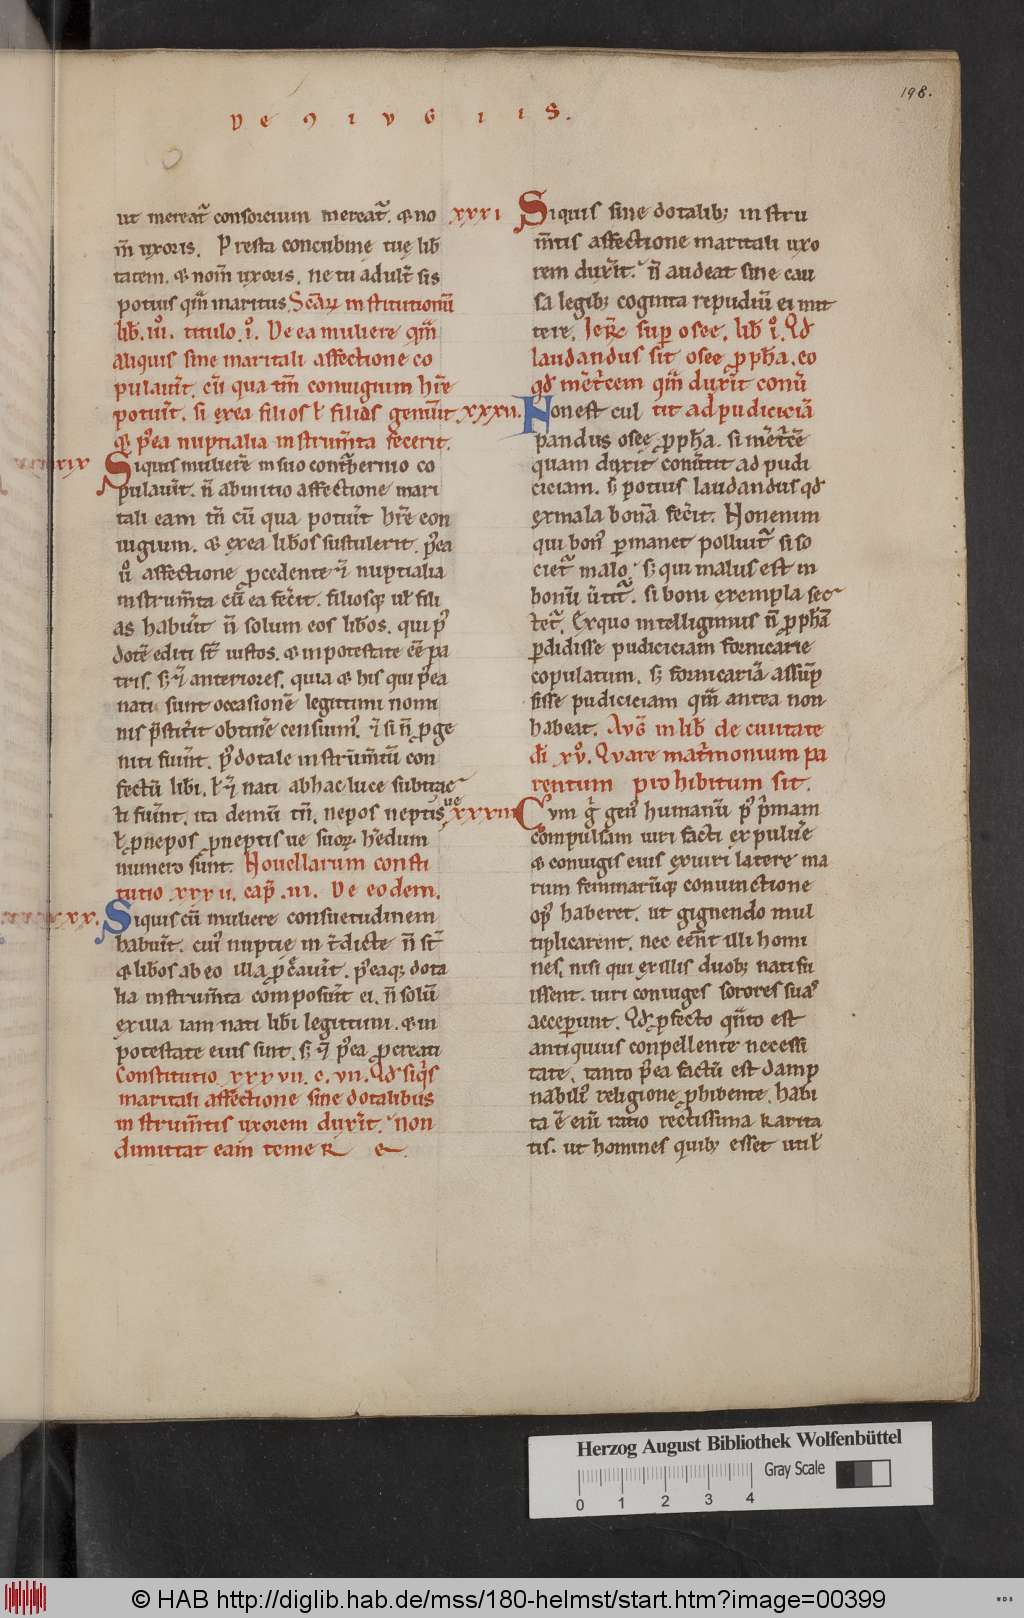 198.
De ꝯiugiis.
ut mereat᷑ consorcium mereat᷑. & no
m̅ uxoris. Presta concubine tue lib̅
tatem. & nom̅ uxoris. ne tu adult̅ sis
potius qm̅ maritus. Scd̅aꝝ institutionū
lib̅. iiii. titulo. i. De ea muliere qm̅
aliquis sine maritali affectione co
pulauit̅. cū qua tm̅ coniugium hr̅e
potuit̅. si ex ea filios ł filias genuit̅
& p᷒ea nuptialia instrum̅ta fecerit.
xxix
Siquis muliere̅ in suo cont̅bernio co
pulauit̅. n̅ ab initio affectione mari
tali eam tm̅ cū qua potuit̅ hr̅e con
iugium. & ex ea lib̅os sustulerit. p᷒ea
u̅o affectione ꝓcedente &̅ nuptialia
instrum̅ta cū ea fec̅it. filiosqꝫ uł fili
as habuit̅ n̅ solum eos lib̅os. qui p᷒
dote̅ editi st̅ iustos. & in potestate ee̅ pa
tris. sꝫ &̅ anteriores. quia & his qui p᷒ea
nati sunt occasione̅ legittimi nomi
nis p̅stit̅it obtine̅ censium᷒. &̅ si n̅ ꝓge
niti fuit̅. p᷒ dotale instrum̅tū con
fectū libi. ł &̅ nati ab hac luce subtrac
ti fuit̅. ita demū tn̅. nepos neptis ue
ł ꝓnepos ꝓneptis ue suoꝝ h̅edum
numero sunt. Nouellarum consti
tutio xxxii. cap̅. iii. De eodem.
xxx.
Siquis cū muliere consuetudinem
habuit̅. cui᷒ nuptie int̅dicte n̅ st̅
& lib̅os ab eo illa ꝓc̅auit̅. p᷒eaqꝫ dota
lia instrum̅ta composuit̅ ei. n̅ solū
ex illa iam nati lib̅i legittimi. & in
potestate eius sunt. sꝫ &̅ p᷒ea ꝓcreati
Constitutio xxxvii. c. vii. Qd̅ siq̅s
maritali affectione sine dotalibus
instrum̅tis uxorem duxit̅. non
dimittat eam temere.
xxxi
Siquis sine dotalibꝫ instru
m̅tis affectione maritali uxo
rem duxit̅. n̅ audeat sine cau
sa legibꝫ cognita repudiū ei mit
tere. Ier̅c sup̅ osee. lib̅ i. Qd̅
laudandus sit osee ꝓph̅a. eo
qd̅ m̅et̅cem qm̅ duxit̅ conū
tit ad pudiciciā
xxxii.
Non est cul
pandus osee ꝓph̅a. si m̅et̅ce̅
quam duxit conu̅tit ad pudi
ciciam. sꝫ potius laudandus qd̅
ex mala bonā fec̅it. Non enim
qui bon᷒ p̱manet polluit᷑ si so
ciet᷑ malo. sꝫ qui malus est in
bonū u̅tit᷑. si boni exempla sec
tet᷑. Ex quo intelligimus n̅ ꝓph̅ā
p̱didisse pudiciciam fornicarie
copulatum. sꝫ fornicariā assūp
sisse pudiciciam qm̅ antea non
habeat. Aug̅ in lib̅ de ciuitate
di̅ xv. Quare mat̅monium pa
rentum prohibitum sit.
xxxiii
Cum g̅ gen᷒ humanū p᷒ p̅mam
compulsam uiri facti ex puluer̅e
& coniugis eius ex uiri latere ma
rum feminarūqꝫ coniunctione
op᷒ haberet. ut gignendo mul
tiplicarent̅. nec eent̅ illi homi
nes. nisi qui ex illis duobꝫ nati fu
issent. uiri coniuges sorores sua᷒
acceperunt. Qd̅ ꝓfecto qn̅to est
antiquius conpellente necessi
tate. tanto p᷒ea factū est damp
nabili᷒ religione ꝓhibente. habi
ta e̅ enī ratio rectissima karita
tis. ut homines quibꝫ esset utił
Herzog August Bibliothek Wolfenbüttel
Gray Scale
0 1 2 3 4
© HAB http://diglib.hab.de/mss/180-helmst/start.htm?image=00399